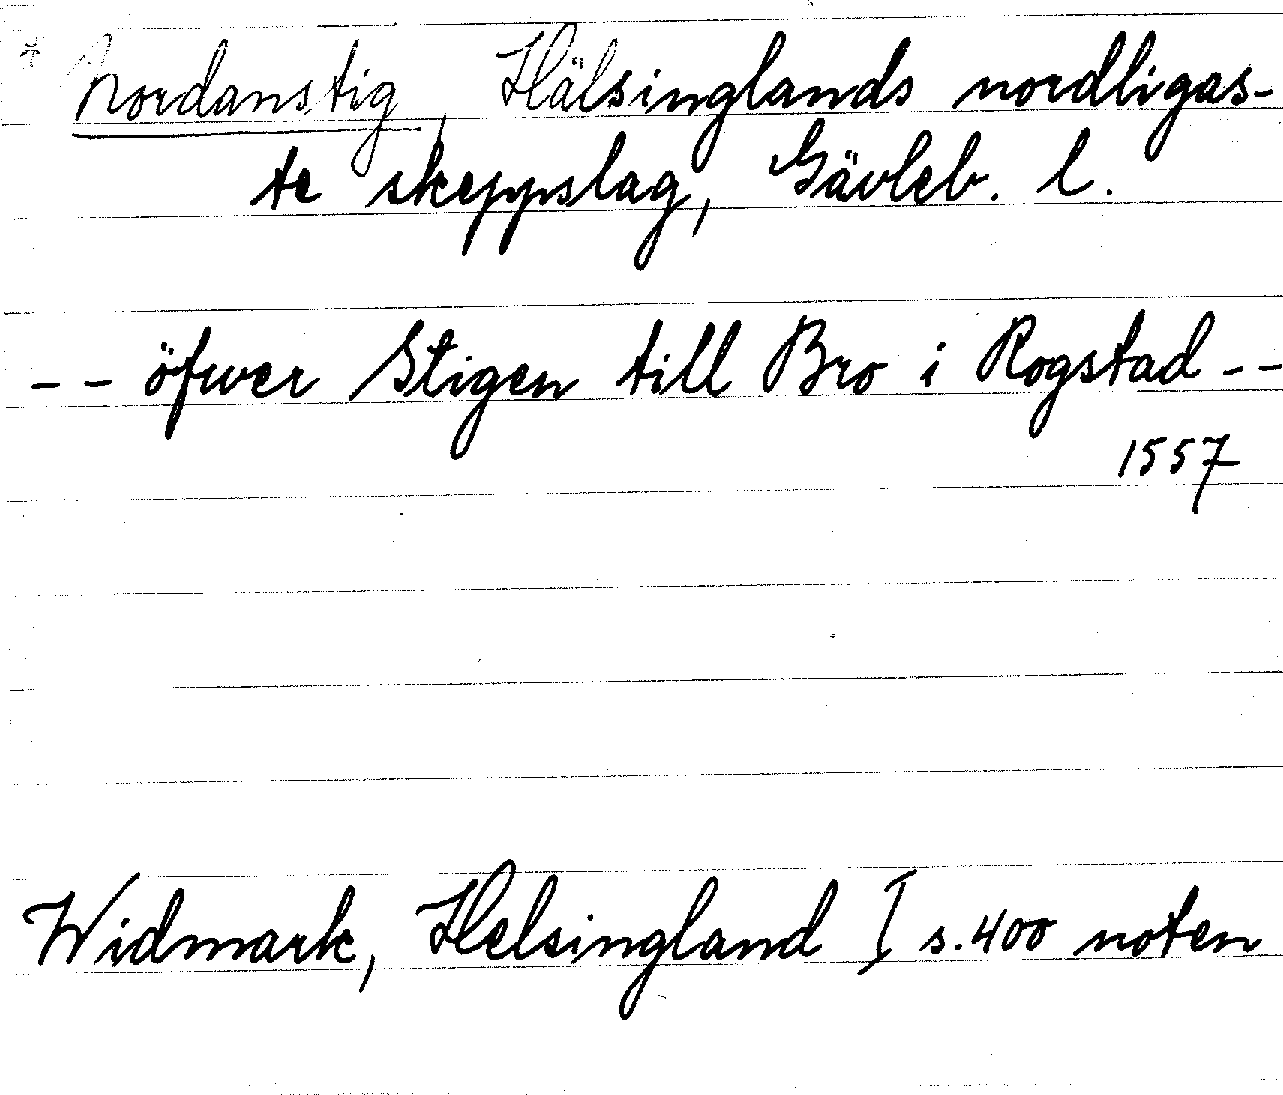 * Nordanstig, Hälsinglands nordligas-
te skeppslag, Gävleb. l.
-- öfwer Stigen till Bro i Rogstad --
1557
Widmark, Helsingland I s. 400 noten